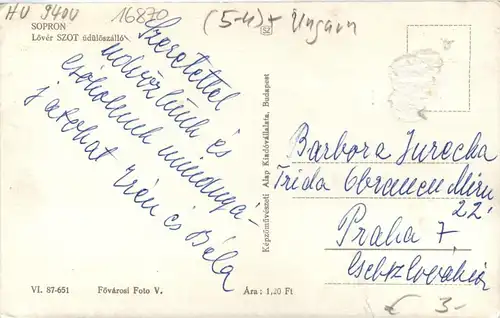 HU 9400
16870
(5-4)+ Ungarn
SOPRON
Lővér SZOT üdülőszálló
Szeretettel
üdvözlünk és
csókolunk mindnyá-
jatokat Irén és Béla
Képzőművészeti Alap Kiadóvállalata, Budapest
Barbora Jurecka
Trida Obrancu Miru
22
Praha 7
Csehszlovákia
VI. 87-651 Fővárosi Foto V. Ára : 1,20 Ft
€ 3-